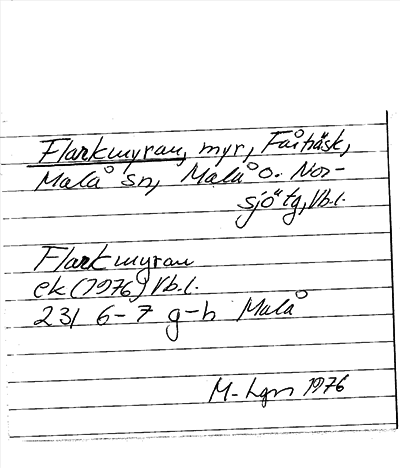 Flarkmyran, myr, Fårträsk,
Malå sn, Malå o. Nor-
sjö tg, Vb.l.
Flarkmyran
ek (1976) Vb.l.
23I 6-7 g-h Malå
M-Lgn 1976